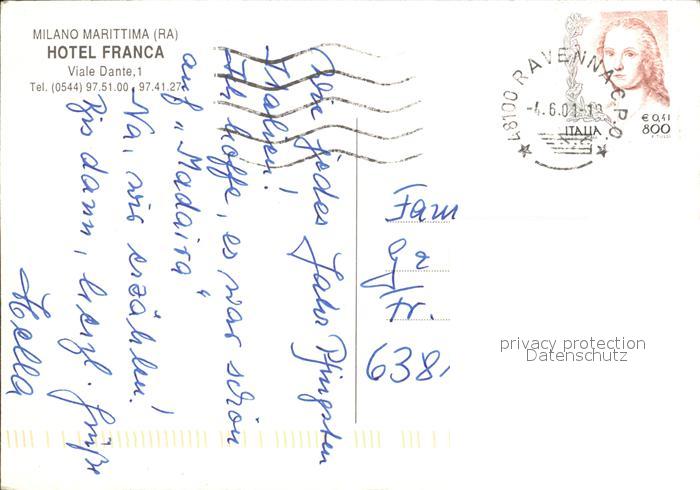 MILANO MARITTIMA (RA)
HOTEL FRANCA
Viale Dante,1
Tel. (0544) 97.51.00 - 97.41.27
48100 RAVENNA C.P.O.
-4.6.01-18
€ 0,41
ITALIA 800
Wie jedes Jahr Pfingsten
Italien!
Ich hoffe, es war schön
auf „Madaira“
Na, wir erzählen!
Bis dann, herzl. Grüße
Hella
Fam
Fr.
6381
privacy protection
Datenschutz